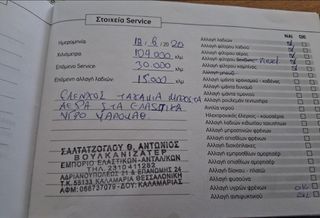 Στοιχεία Service
Ημερομηνία 12/6/2020
Χιλιόμετρα 109.000 χλμ
Επόμενο Service 30.000 χλμ
Επόμενη αλλαγή λαδιών 15.000 χλμ
ΕΛΕΓΧΟΣ ΤΑΚΑΚΙΑ ΜΠΡΟΣΤΑ
ΑΕΡΑ ΣΤΑ ΕΛΑΣΤΙΚΑ
ΥΓΡΟ
ΣΑΛΤΑΤΖΟΓΛΟΥ Θ. ΑΝΤΩΝΙΟΣ
ΒΟΥΛΚΑΝΙΖΑΤΕΡ
ΕΜΠΟΡΙΟ ΕΛΑΣΤΙΚΩΝ-ΑΝΤΑΛ/ΚΩΝ
ΤΗΛ. 2310411282
ΑΔΡΙΑΝΟΥΠΟΛΕΩΣ 21 & ΕΠΑΝΟΜΗΣ 24
Τ.Κ. 55133 ΚΑΛΑΜΑΡΙΑ ΘΕΣΣΑΛΟΝΙΚΗ
ΑΦΜ: 068737079 - ΔΟΥ: ΚΑΛΑΜΑΡΙΑΣ
ΝΑΙ ΟΧΙ
Αλλαγή λαδιών
Αλλαγή φίλτρου λαδιού
Αλλαγή φίλτρου αέρος
Αλλαγή φίλτρου
Αλλαγή φίλτρου καμπίνας
Αλλαγή μπουζί
Αλλαγή ιμάντα χρονισμού - καδένας
Αλλαγή ιμάντα δυναμό
Αλλαγή αντλίας νερού
Αλλαγή ρουλεμάν τεντωτήρα
Αντλία νερού
Ηλεκτρονικός έλεγχος - καυσαέρια
Αλλαγή λαδιών κιβωτίου ταχυτήτων
Αλλαγή μπροστινών φρένων
Αλλαγή οπίσθιων φρένων
Αλλαγή δισκόπλακας
Αλλαγή εμπροσθίων αμορτισέρ
Αλλαγή οπισθίων αμορτισέρ
Αλλαγή δίσκου - πλατό
Αλλαγή φυσούνα
Αλλαγή υγρών φρένων
Αλλαγή αντιψυκτικού